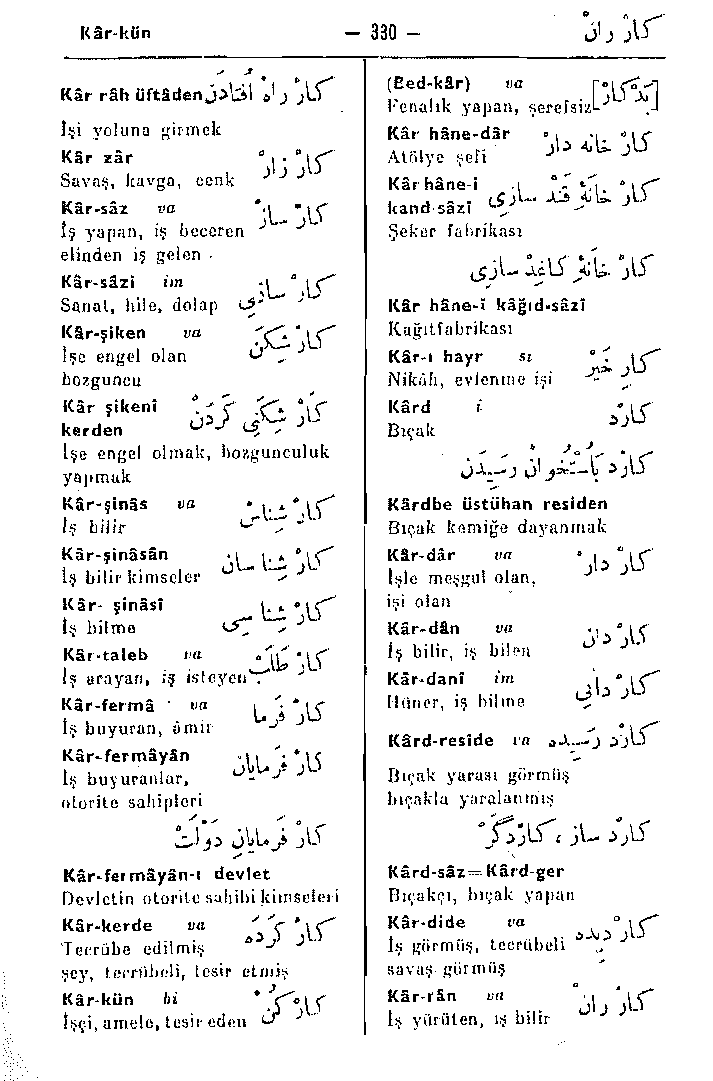 Kâr-kün — 330 — كارْ رانْ
Kâr râh üftâden كارْ راهْ اُفْتادَنْ
İşi yoluna girmek
Kâr zâr كارْ زارْ
Savaş, kavga, cenk
Kâr-sâz va كارْ سازْ
İş yapan, iş beceren
elinden iş gelen
Kâr-sâzi im كارْ سازِى
Sanat, hile, dolap
Kâr-şiken va كارْ شِكَنْ
İşe engel olan
bozguncu
Kâr şikenî كارْ شِكَنِى كَرْدَنْ
kerden
İşe engel olmak, bozgunculuk
yapmak
Kâr-şinâs va كارْ شِناسْ
İş bilir
Kâr-şinâsân كارْ شِنا سان
İş bilir kimseler
Kâr- şinâsî كارْ شِنا سِى
İş bilme
Kâr-taleb va كارْ طَلَبْ
İş arayan, iş isteyen
Kâr-fermâ va كارْ فَرْما
İş buyuran, âmir
Kâr-fermâyân كارْ فَرْمايانْ
İş buyuranlar,
otorite sahipleri
كارْ فَرْمايانِ دَوْلَتْ
Kâr-fermâyân-ı devlet
Devletin otorite sahibi kimseleri
Kâr-kerde va كارْ كَرْدَه
Tecrübe edilmiş
şey, tecrübeli, tesir etmiş
Kâr-kün bi كارْ كُنْ
İşçi, amele, tesir eden
(Bed-kâr) va [بَدْ كارْ]
Fenalık yapan, şerefsiz
Kâr hâne-dâr كارْ خانَه دارْ
Atölye şefi
Kâr hâne-i كارْ خانَۀِ قَنْد سازِى
kand-sâzî
Şeker fabrikası
كارْ خانَۀِ كاغِدْ سازِى
Kâr hâne-i kâğıd-sâzî
Kağıtfabrikası
Kâr-ı hayr si كارِ خَيْرْ
Nikâh, evlenme işi
Kârd i كارْدْ
Bıçak
كارْد بَاُسْتُخْوانْ رَسِيدَنْ
Kârdbe üstühan residen
Bıçak kemiğe dayanmak
Kâr-dâr va كارْ دارْ
İşle meşgul olan,
işi olan
Kâr-dân va كارْ دانْ
İş bilir, iş bilen
Kâr-danî im كارْ دانِى
Hüner, iş bilme
Kârd-reside va كارْدْ رَسِيدَه
Bıçak yarası görmüş
bıçakla yaralanmış
كارْد ساز ، كارْدْگَرْ
Kârd-sâz=Kârd-ger
Bıçakçı, bıçak yapan
Kâr-dide va كارْ دِيدَه
İş görmüş, tecrübeli
savaş görmüş
Kâr-rân va كارْ رانْ
İş yürüten, iş bilir